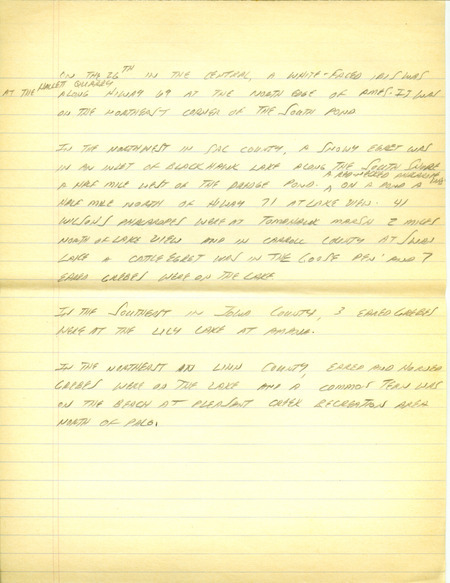 ON THE 26TH IN THE CENTRAL, A WHITE-FACED IBIS WAS
AT THE HALLETT QUARRY
ALONG HIWAY 69 AT THE NORTH EDGE OF AMES. IT WAS
ON THE NORTHEAST CORNER OF THE SOUTH POND
IN THE NORTHWEST IN SAC COUNTY, A SNOWY EGRET WAS
IN AN INLET OF BLACKHAWK LAKE ALONG THE SOUTH SHORE
A HALF MILE WEST OF THE DREDGE POND. A RED-NECKED PHALAROPE WAS
ON A POND A
HALF MILE NORTH OF HIWAY 71 AT LAKE VIEW. 41
WILSONS PHALAROPES WERE AT TOMAHAWK MARSH 2 MILES
NORTH OF LAKE VIEW AND IN CARROLL COUNTY AT SWAN
LAKE A CATTLE EGRET WAS IN THE GOOSE PEN AND 7
EARED GREBES WERE ON THE LAKE
IN THE SOUTHEAST IN IOWA COUNTY, 3 EARED GREBES
WERE AT THE LILY LAKE AT AMANA.
IN THE NORTHEAST IN LINN COUNTY, EARED AND HORNED
GREBES WERE ON THE LAKE AND A COMMON TERN WAS
ON THE BEACH AT PLEASANT CREEK RECREATION AREA
NORTH OF PALO.